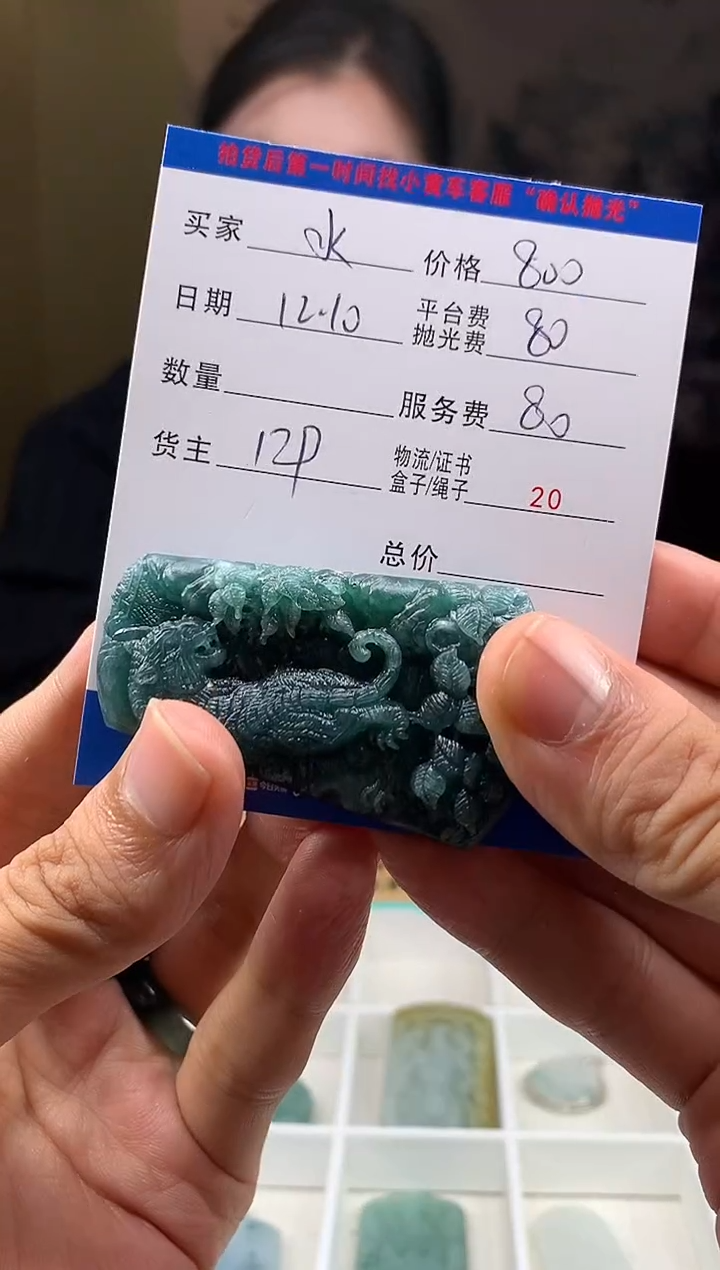 抢货后第一时间找小黄车客服“确认抛光”
买家 水 价格 800
日期 12.10 平台费 抛光费 80
数量 服务费 80
货主 12P 物流/证书 盒子/绳子 20
总价